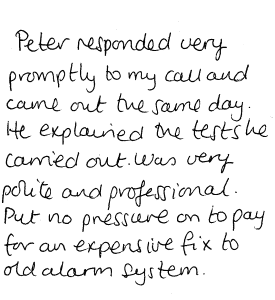 Peter responded very
promptly to my call and
came out the same day.
He explained the tests he
carried out. Was very
polite and professional.
Put no pressure on to pay
for an expensive fix to
old alarm system.